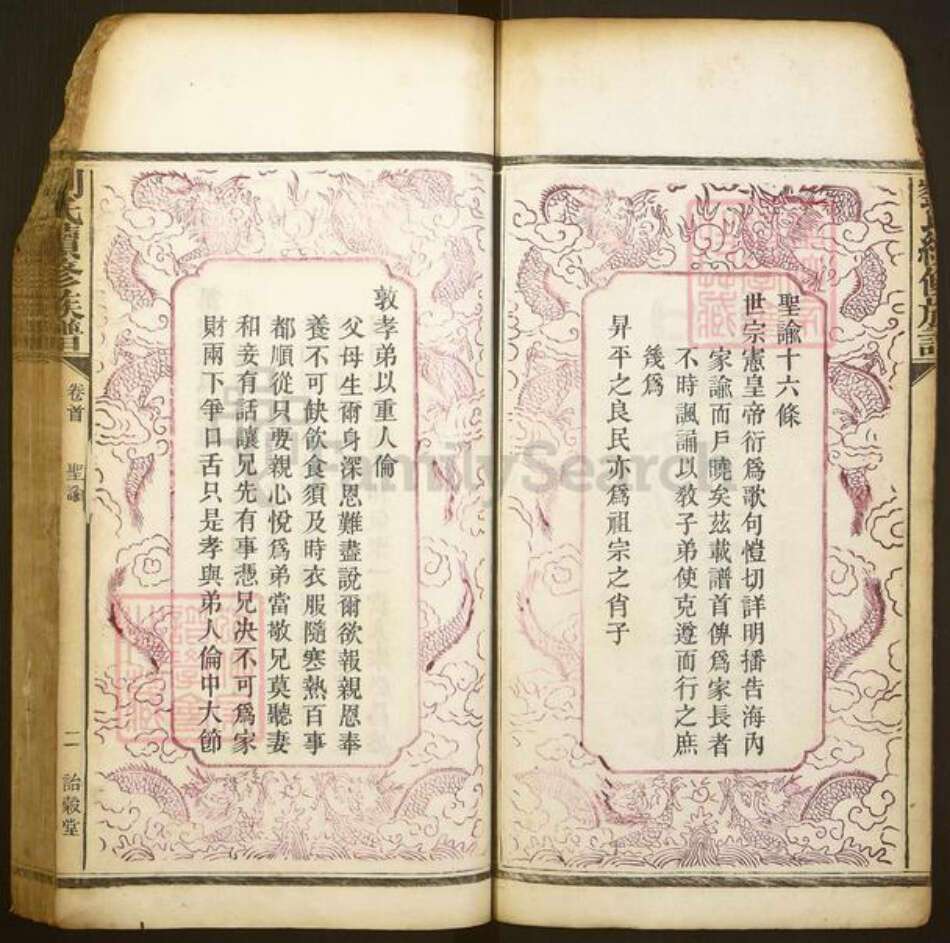 聖諭十六條
世宗憲皇帝衍爲歌句愷切詳明播告海內
家諭而戶曉矣茲載譜首俾爲家長者
不時諷誦以敎子弟使克遵而行之庶
幾爲
昇平之良民亦爲祖宗之肖子
敦孝弟以重人倫
父母生爾身深恩難盡說爾欲報親恩奉
養不可缺飮食須及時衣服隨寒熱百事
都順從只要親心悅爲弟當敬兄莫聽妻
和妾有話讓兄先有事憑兄決不可爲家
財兩下爭口舌只是孝與弟人倫中大節
氏續修族譜
卷首
聖諭
二
詒穀堂
FamilySearch